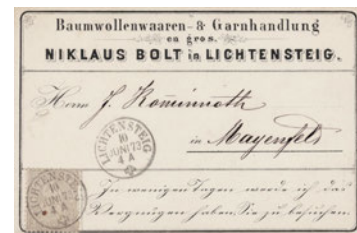 Baumwollenwaaren- & Garnhandlung
en gros.
NIKLAUS BOLT in LICHTENSTEIG.
Herrn J.
in Mayenfels
LICHTENSTEIG
10
JUNI 73
4 A
LICHTENSTEIG
10
JUNI 73
4 A
In wenigen Tagen werde ich das
Vergnügen haben, Sie zu besuchen.